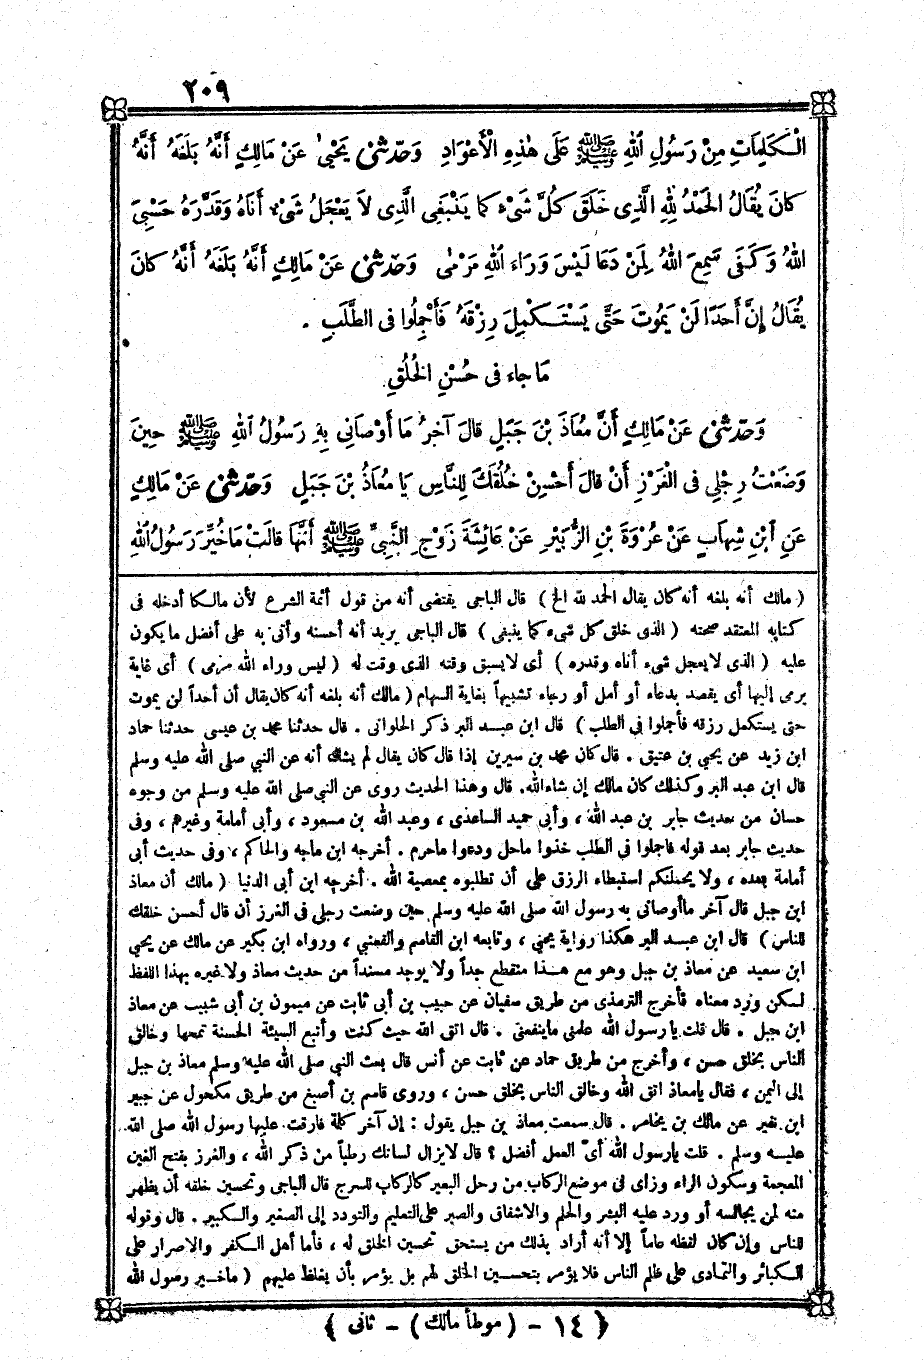 ٢٠٩
الْكَلِمَاتِ مِنْ رَسُولِ اللهِ ﷺ عَلَى هٰذِهِ الْأَعْوَادِ وَحَدَّثَنِي يَحْيَى عَنْ مَالِكٍ أَنَّهُ بَلَغَهُ أَنَّهُ
كانَ يُقَالُ الحَمْدُ لِلهِ الَّذِى خَلَقَ كُلَّ شَىْءٍ كما يَنْبَغِى الَّذِى لاَ يَعْجَلُ شَىْءٌ أَنَاهُ وَقَدَّرَهُ حَسْبِىَ
اللهُ وَكَفَى سَمِعَ اللهُ لِمَنْ دَعَا لَيْسَ وَرَاءَ اللهِ مَرْمٰى وَحَدَّثَنِي عَنْ مَالِكٍ أَنَّهُ بَلَغَهُ أَنَّهُ كانَ
يُقَالُ إِنَّ أَحَدًا لَنْ يَمُوتَ حَتَّى يَسْتَكْمِلَ رِزْقَهُ فَأَجْمِلُوا فى الطَّلَبِ .
مَا جاء فى حُسْنِ الخُلُقِ
وَحَدَّثَنِي عَنْ مَالِكٍ أَنَّ مُعَاذَ بْنَ جَبَلٍ قالَ آخرُ مَا أَوْصَانِى بِهِ رَسُولُ اللهِ ﷺ حِينَ
وَضَعْتُ رِجْلِى فى الْغَرْزِ أَنْ قالَ أَحْسِنْ خُلُقَكَ لِلنَّاسِ يَا مُعَاذُ بْنَ جَبَلٍ وَحَدَّثَنِي عَنْ مَالِكٍ
عَنِ ابْنِ شِهَابٍ عَنْ عُرْوَةَ بْنِ الزُّبَيْرِ عَنْ عَائِشَةَ زَوْجِ النَّبِىِّ ﷺ أَنَّهَا قالَتْ مَا خُيِّرَ رَسُولُ اللهِ
( مالك أنه بلغه أنه كان يقال الحمد لله الخ ) قال الباجى يقتضى أنه من قول أئمة الشرع لأن مالكا أدخله فى
كتابه المعتقد صحته ( الذى خلق كل شىء كما ينبغى ) قال الباجى يريد أنه أحسنه وأتى به على أفضل ما يكون
عليه ( الذى لا يعجل شىء أناه وقدره ) أى لا يسبق وقته الذى وقت له ( ليس وراء الله مرمى ) أى غاية
يرمى إليها أى يقصد بدعاء أو أمل أو رجاء تشبيها بغاية السهام ( مالك أنه بلغه أنه كان يقال أن أحداً لن يموت
حتى يستكمل رزقه فأجملوا فى الطلب ) قال ابن عبد البر ذكر الحلوانى . قال حدثنا محمد بن عيسى حدثنا حماد
ابن زيد عن يحيى بن عتيق . قال كان محمد بن سيرين إذا قال كان يقال لم يشك أنه عن النبي صلى الله عليه وسلم
قال ابن عبد البر وكذلك كان مالك إن شاء الله. قال وهذا الحديث روى عن النبي صلى الله عليه وسلم من وجوه
حسان من حديث جابر بن عبد الله ، وأبي حميد الساعدى ، وعبد الله بن مسعود ، وأبى أمامة وغيرهم ، وفى
حديث جابر بعد قوله فاجملوا فى الطلب خذوا ماحل ودعوا ماحرم . أخرجه ابن ماجه والحاكم ، وفى حديث أبى
أمامة بعده ، ولا يحملنكم استبطاء الرزق على أن تطلبوه بمعصية الله . أخرجه ابن أبى الدنيا ( مالك أن معاذ
ابن جبل قال آخر ماأوصانى به رسول الله صلى الله عليه وسلم حين وضعت رجلى فى الغرز أن قال أحسن خلقك
للناس ) قال ابن عبد البر هكذا رواية يحيى ، وتابعه ابن القاسم والقعنبى ، ورواه ابن بكير عن مالك عن يحيى
ابن سعيد عن معاذ بن جبل وهو مع هذا منقطع جداً ولا يوجد مسنداً من حديث معاذ ولا غيره بهذا اللفظ
لكن ورد معناه فأخرج الترمذى من طريق سفيان عن حبيب بن أبى ثابت عن ميمون بن أبى شبيب عن معاذ
ابن جبل . قال قلت يا رسول الله علمنى ماينفعنى . قال اتق الله حيث كنت وأتبع السيئة الحسنة تمحها وخالق
الناس بخلق حسن ، وأخرج من طريق حماد عن ثابت عن أنس قال بعث النبي صلى الله عليه وسلم معاذ بن جبل
إلى اليمن ، فقال يامعاذ اتق الله وخالق الناس بخلق حسن ، وروى قاسم بن أصبغ من طريق مكحول عن جبير
ابن نفير عن مالك بن يخامر . قال سمعت معاذ بن جبل يقول : إن آخر كلمة فارقت عليها رسول الله صلى الله
عليه وسلم . قلت يارسول الله أىّ العمل أفضل ؟ قال لايزال لسانك رطباً من ذكر الله ، والغرز بفتح الغين
المعجمة وسكون الراء وزاى فى موضع الركاب من رحل البعير كالركاب للسرج قال الباجى وتحسين خلقه أن يظهر
منه لمن يجالسه أو ورد عليه البشر والحلم والاشفاق والصبر على التعليم والتودد إلى الصغير والكبير . قال وقوله
للناس وإن كان لفظه عاماً إلا أنه أراد بذلك من يستحق تحسين الخلق له ، فأما أهل الكفر والاصرار على
الكبائر والتمادى على ظلم الناس فلا يؤمر بتحسين الخلق لهم بل يؤمر بأن يغلظ عليهم ( ماخير رسول الله
{ ١٤ - ( موطأ مالك ) - ثانى }